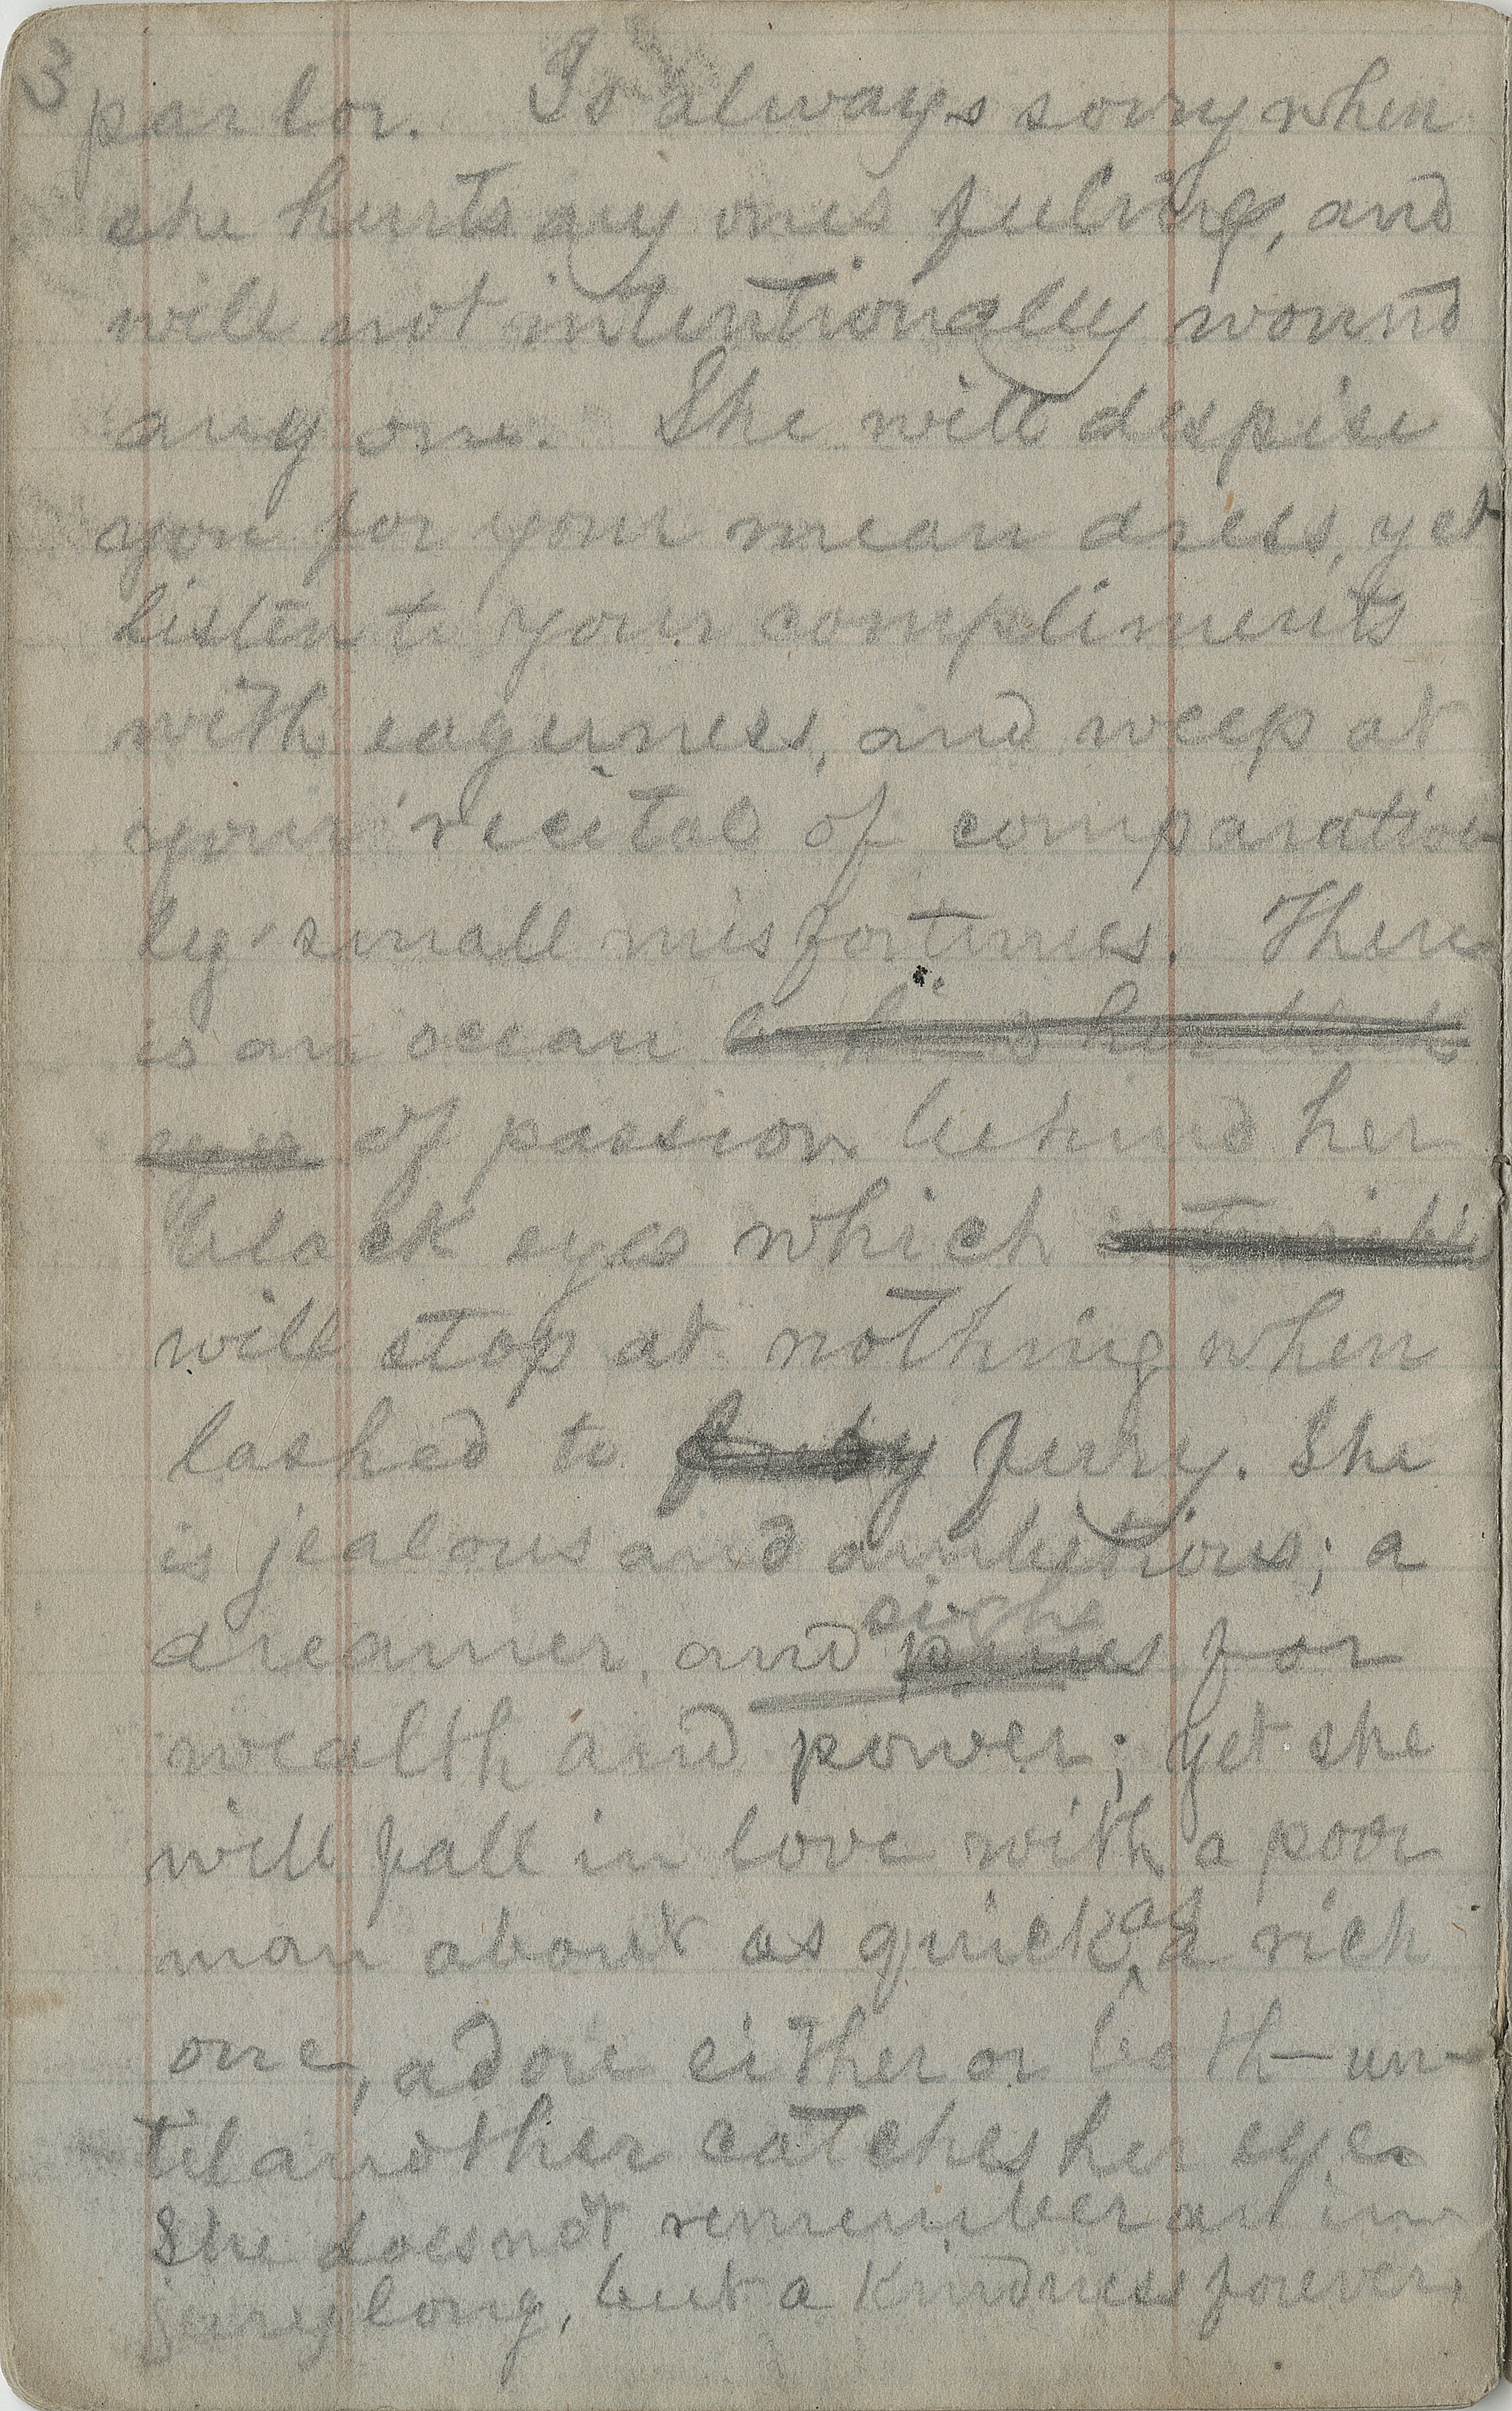 3
parlor. Is always sorry when
she hurts any ones feeling, and
will not intentionally wound
any one. She will despise
you for your mean dress, yet
listen to your compliments
with eagerness, and weep at
your recital of comparative-
ly small misfortunes. There
is an ocean behind her black
eyes of passion behind her
black eyes which is terrible
will stop at nothing when
lashed to fury. She
is jealous and ambitious; a
sighs
dreamer, and pines for
wealth and power; yet she
will fall in love with a poor
as
man about as quick ^ a rich
one, adore either or both—un-
til another catches her eye.
She does not remember an in-
jury long, but a kindness forever.